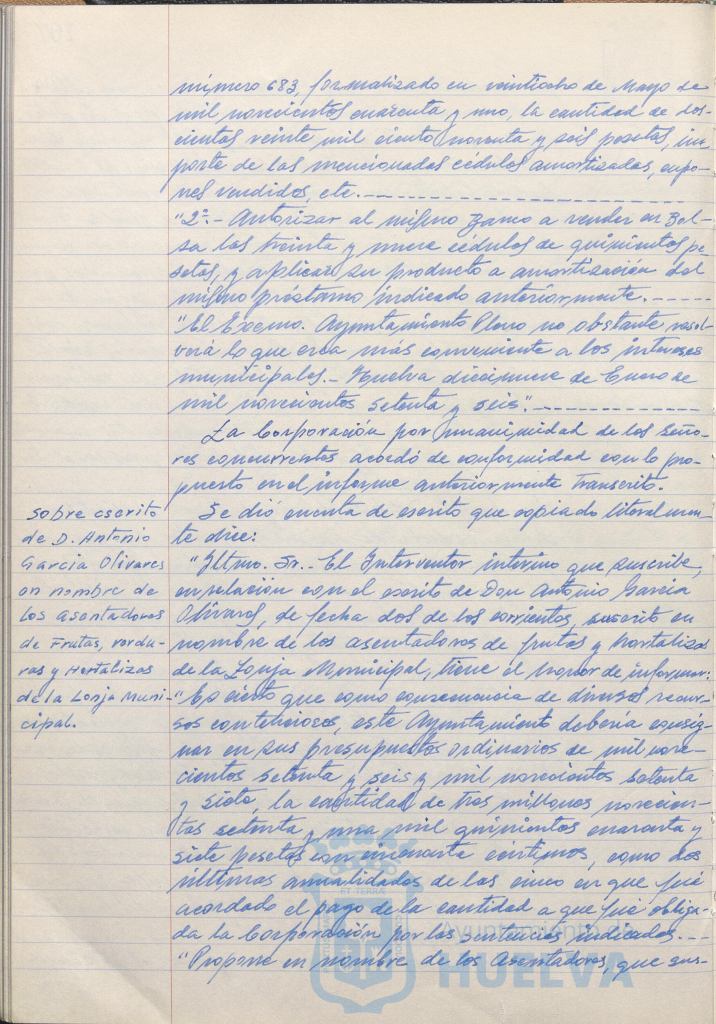 número 683, formalizado en veintiocho de Mayo de
mil novecientos cuarenta y uno, la cantidad de dos-
cientas veinte mil ciento noventa y seis pesetas, im-
porte de las mencionadas cédulas amortizadas, cupo-
nes vendidos, etc.
"2º.- Autorizar al mismo Banco a vender en Bol-
sa las treinta y nueve cédulas de quinientas pe-
setas, y aplicar su producto a amortización del
mismo préstamo indicado anteriormente.
"El Excmo. Ayuntamiento Pleno no obstante resol-
verá lo que crea más conveniente a los intereses
municipales.- Huelva diecinueve de Enero de
mil novecientos setenta y seis".
La Corporación por unanimidad de los seño-
res concurrentes acordó de conformidad con lo pro-
puesto en el informe anteriormente transcrito.
Sobre escrito
de D. Antonio
Garcia Olivares
en nombre de
los Asentadores
de Frutas, verdu-
ras y Hortalizas
de la Lonja Muni-
cipal.
Se dió cuenta de escrito que copiado literalmen-
te dice:
"Iltmo. Sr.- El Interventor interino que suscribe,
en relación con el escrito de Don Antonio Garcia
Olivares, de fecha dos de los corrientes, suscrito en
nombre de los asentadores de frutas y hortalizas
de la Lonja Municipal, tiene el honor de informar:
"Es cierto que como consecuencia de diversos recur-
sos contenciosos, este Ayuntamiento debería consig-
nar en sus presupuestos ordinarios de mil nove-
cientos setenta y seis y mil novecientos setenta
y siete, la cantidad de tres millones novecien-
tas setenta y una mil quinientas cuarenta y
siete pesetas con cincuenta céntimos, como dos
últimas anualidades de las cinco en que fué
acordado el pago de la cantidad a que fué obliga-
da la Corporación por las sentencias indicadas.
"Propone en nombre de los Asentadores, que sus-
ET TERRÆ
Ayuntamiento de
HUELVA